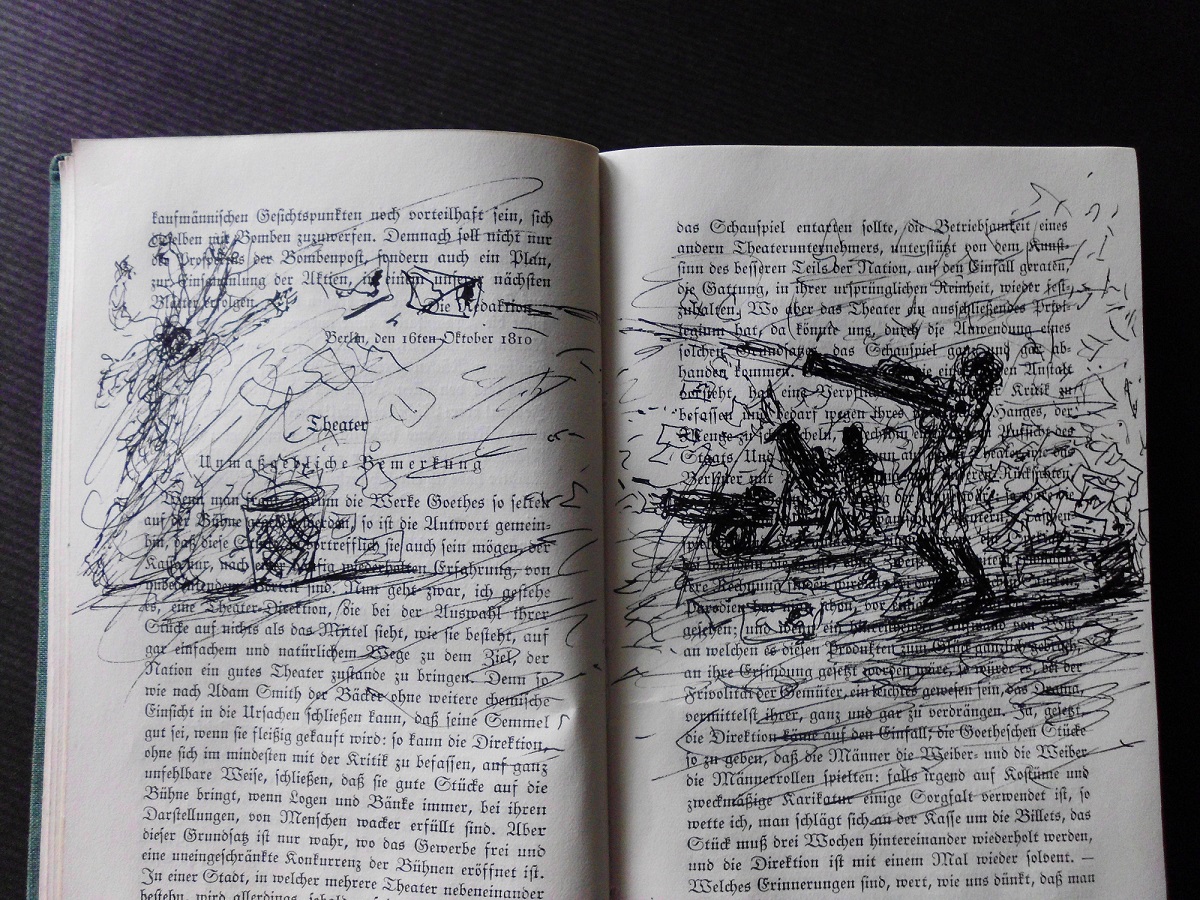 kaufmännischen Gesichtspunkten noch vorteilhaft sein, sich
dieselben mit Bomben zuzuwerfen. Demnach soll nicht nur
der Prospektus der Bombenpost, sondern auch ein Plan,
zur Einsammlung der Aktien, in einem unsrer nächsten
Blätter erfolgen.
Die Redaktion
Berlin, den 16ten Oktober 1810
Theater
Unmaßgebliche Bemerkung
Wenn man fragt, warum die Werke Goethes so selten
auf der Bühne gegeben werden, so ist die Antwort gemein-
hin, daß diese Stücke, so vortrefflich sie auch sein mögen, der
Kasse nur, nach einer häufig wiederholten Erfahrung, von
unbedeutendem Vorteil sind. Nun geht zwar, ich gestehe
es, eine Theater-Direktion, die bei der Auswahl ihrer
Stücke auf nichts als das Mittel sieht, wie sie besteht, auf
gar einfachem und natürlichem Wege zu dem Ziel, der
Nation ein gutes Theater zustande zu bringen. Denn so
wie nach Adam Smith der Bäcker ohne weitere chemische
Einsicht in die Ursachen schließen kann, daß seine Semmel
gut sei, wenn sie fleißig gekauft wird: so kann die Direktion,
ohne sich im mindesten mit der Kritik zu befassen, auf ganz
unfehlbare Weise, schließen, daß sie gute Stücke auf die
Bühne bringt, wenn Logen und Bänke immer, bei ihren
Darstellungen, von Menschen wacker erfüllt sind. Aber
dieser Grundsatz ist nur wahr, wo das Gewerbe frei und
eine uneingeschränkte Konkurrenz der Bühnen eröffnet ist.
In einer Stadt, in welcher mehrere Theater nebeneinander
bestehn, wird allerdings, sobald
das Schauspiel entarten sollte, die Betriebsamkeit eines
andern Theaterunternehmers, unterstützt von dem Kunst-
sinn des besseren Teils der Nation, auf den Einfall geraten,
die Gattung, in ihrer ursprünglichen Reinheit, wieder fest-
zuhalten. Wo aber das Theater ein ausschließendes Privi-
legium hat, da könnte uns, durch die Anwendung eines
solchen Grundsatzes, das Schauspiel ganz und gar ab-
handen kommen. Eine Direktion, die einer solchen Anstalt
vorsteht, hat eine Verpflichtung der Kritik zu
befassen und bedarf wegen ihres Hanges, der
Menge zu schmeicheln, Aufsicht des
Staats. Und
Berliner mit Rücksichten
der
passen
spiel
bei welchem die
tere Rechnung finden
Parodien hat man schon, vor
gesehen; und wenn ein von Witz
an welchen es diesen Produkten zum Glück gänzlich gebrach,
an ihre Erfindung gesetzt worden wäre, so würde es, bei der
Frivolität der Gemüter, ein leichtes gewesen sein, das Drama,
vermittelst ihrer, ganz und gar zu verdrängen. Ja, gesetzt,
die Direktion käme auf den Einfall, die Goetheschen Stücke
so zu geben, daß die Männer die Weiber- und die Weiber
die Männerrollen spielten: falls irgend auf Kostüme und
zweckmäßige Karikatur einige Sorgfalt verwendet ist, so
wette ich, man schlägt sich an der Kasse um die Billets, das
Stück muß drei Wochen hintereinander wiederholt werden,
und die Direktion ist mit einem Mal wieder solvent. —
Welches Erinnerungen sind, wert, wie uns dünkt, daß man